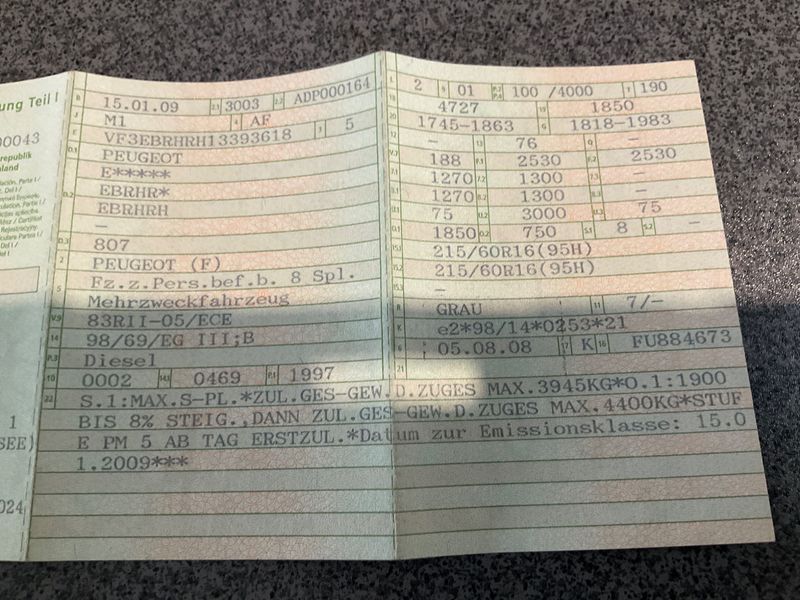 ung Teil I
00043
republik
hland
B 15.01.09 2.1 3003 2.2 ADP000164
J M1 4 AF
E VF3EBRHRH13393618 3 5
D.1 PEUGEOT
E*****
D.2 EBRHR*
EBRHRH
—
D.3 807
2 PEUGEOT (F)
5 Fz.z.Pers.bef.b. 8 Spl.
Mehrzweckfahrzeug
V.9 83RII-05/ECE
14 98/69/EG III;B
P.3 Diesel
10 0002 14.1 0469 P.1 1997
L 2 9 01 P.2 P.4 100 /4000 T 190
18 4727 19 1850
20 1745-1863 G 1818-1983
12 — 13 76 Q —
V.7 188 F.1 2530 F.2 2530
7.1 1270 7.2 1300 7.3 —
8.1 1270 8.2 1300 8.3 —
U.1 75 U.2 3000 U.3 75
O.1 1850 O.2 750 S.1 8 S.2 —
15.1 215/60R16(95H)
15.2 215/60R16(95H)
15.3 —
R GRAU 11 7/—
K e2*98/14*0253*21
6 05.08.08 17 K 16 FU884673
21
22 S.1:MAX.S-PL.*ZUL.GES-GEW.D.ZUGES MAX.3945KG*O.1:1900
BIS 8% STEIG.,DANN ZUL.GES-GEW.D.ZUGES MAX.4400KG*STUF
E PM 5 AB TAG ERSTZUL.*Datum zur Emissionsklasse: 15.0
1.2009***
1
SEE)
024